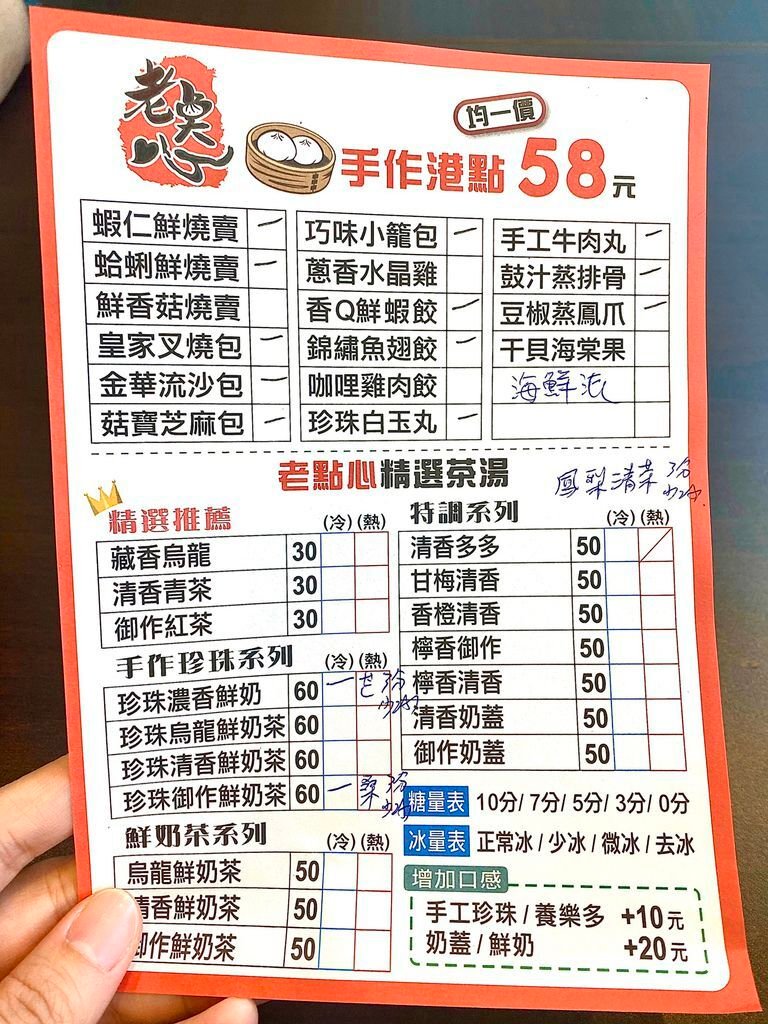 老點心
均一價
手作港點 58元
蝦仁鮮燒賣 一
蛤蜊鮮燒賣 一
鮮香菇燒賣
皇家叉燒包 一
金華流沙包 一
菇寶芝麻包 一
巧味小籠包 一
蔥香水晶雞
香Q鮮蝦餃 一
錦繡魚翅餃 一
咖哩雞肉餃
珍珠白玉丸 一
手工牛肉丸 一
鼓汁蒸排骨 一
豆椒蒸鳳爪 一
干貝海棠果
海鮮派
老點心精選茶湯
鳳梨清茶 3分
精選推薦 (冷) (熱)
藏香烏龍 30
清香青茶 30
御作紅茶 30
手作珍珠系列 (冷) (熱)
珍珠濃香鮮奶 60 一 3分
珍珠烏龍鮮奶茶 60
珍珠清香鮮奶茶 60
珍珠御作鮮奶茶 60 一 3分
鮮奶茶系列 (冷) (熱)
烏龍鮮奶茶 50
清香鮮奶茶 50
御作鮮奶茶 50
特調系列 (冷) (熱)
清香多多 50
甘梅清香 50
香橙清香 50
檸香御作 50
檸香清香 50
清香奶蓋 50
御作奶蓋 50
糖量表 10分/ 7分/ 5分/ 3分/ 0分
冰量表 正常冰 / 少冰 / 微冰 / 去冰
增加口感
手工珍珠 / 養樂多 +10元
奶蓋 / 鮮奶 +20元